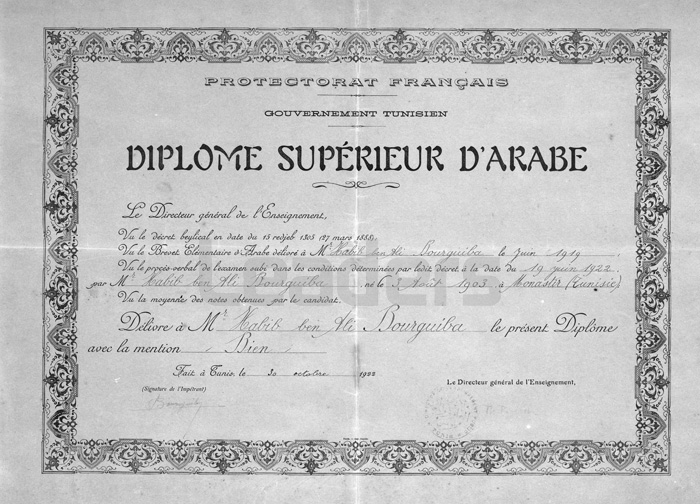 PROTECTORAT FRANÇAIS
GOUVERNEMENT TUNISIEN
DIPLOME SUPÉRIEUR D'ARABE
Le Directeur général de l'Enseignement,
Vu le décret beylical en date du 15 redjeb 1305 (27 mars 1888);
Vu le Brevet Élémentaire d'Arabe délivré à Mr Habib ben Ali Bourguiba le Juin 1919;
Vu le procès-verbal de l'examen subi dans les conditions déterminées par ledit décret à la date du 19 juin 1922
par Mr Habib ben Ali Bourguiba, né le 3 Août 1903, à Monastir (Tunisie)
Vu la moyenne des notes obtenues par le candidat.
Délivre à Mr Habib ben Ali Bourguiba le présent Diplôme
avec la mention Bien
Fait à Tunis, le 30 octobre 1922
(Signature de l'Impétrant)
Le Directeur général de l'Enseignement,